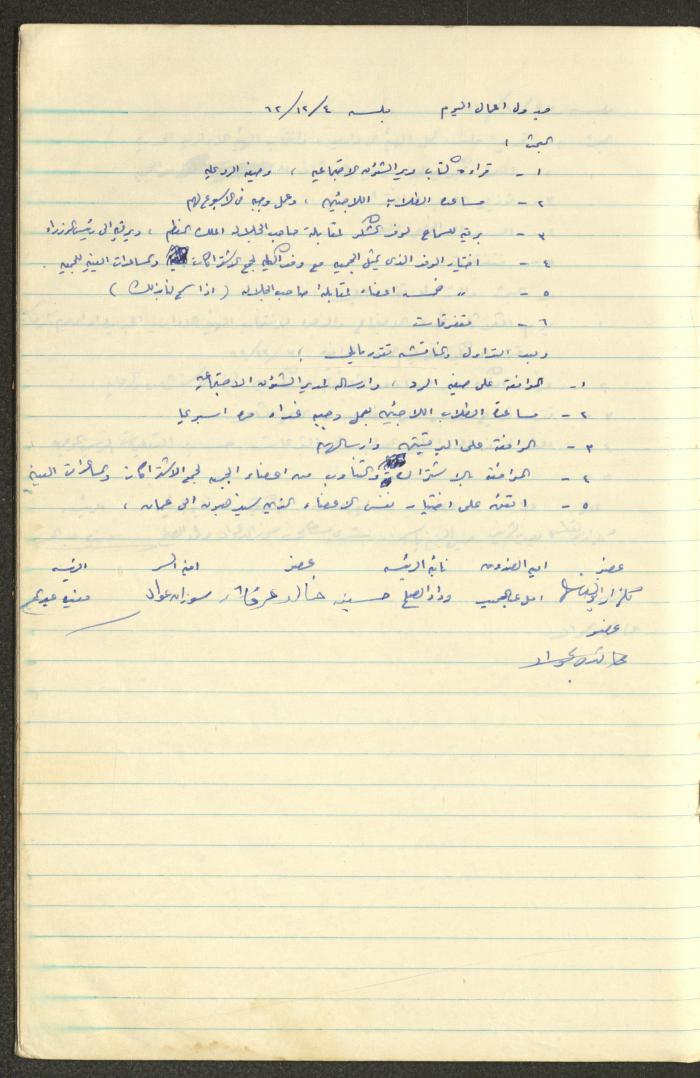 جدول اعمال اليوم جلسة ٤/١٢/٦٢
البحث :
١ - قراءة كتاب مدير الشؤون الاجتماعية ، وصيغة الرد عليه
٢ - مساعدة الطلاب اللاجئين ، وعمل وجبة في الاسبوع لهم
٣ - برقية للسماح لوفد لشكر لمقابلة صاحب الجلالة الملك المعظم ، وبرقية الى رئيس الوزراء
٤ - اختيار الوفد الذي يمثل الجمعية مع وفد لجمع الاشتراكات والمساعدات العينية للجمعية .
٥ - " خمسة اعضاء لمقابلة صاحب الجلالة ( اذا سمح بذلك )
٦ - متفرقات
وبعد التداول والمناقشة تقرر مايلي :
١ - الموافقة على صيغة الرد ، وارساله لمدير الشؤون الاجتماعية
٢ - مساعدة الطلاب اللاجئين بعمل وجبة غداء مرة اسبوعيا
٣ - الموافقة على البرقيتين وارسالهما
٤ - الموافقة بالاشتراك والتناوب من اعضاء لجمع الاشتراكات والمساعدات العينية
٥ - اتفق على اختيار نفس الاعضاء الذين سيذهبون الى عمان ،
عضو امينة الصندوق نائبة الرئيسة عضو امينة السر الرئيسة
وداد حسينة خالد سوزان عواد
عضو